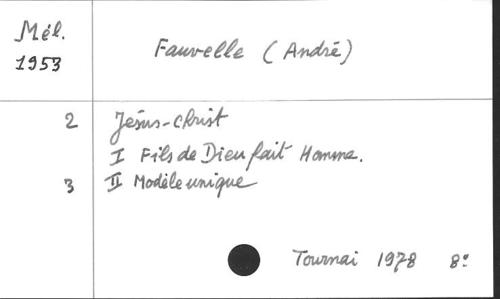 Mél.
1953
Fauvelle (André)
2 Jésus-Christ
I Fils de Dieu fait Homme.
3 II Modèle unique
Tournai 1978 8°